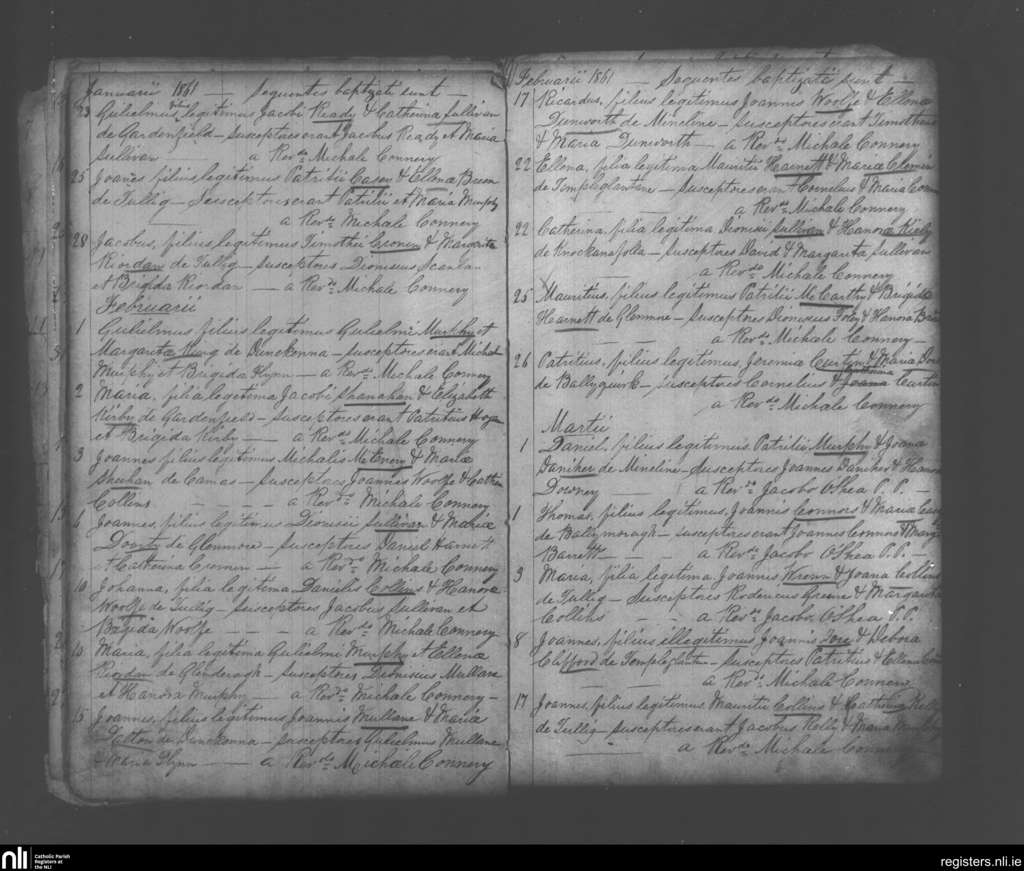 Januarii 1861 — Sequentes baptizati sunt —
23 Gulielmus, filius legitimus Jacobi Ready & Catherina Sullivan
de Gardenfield — susceptores erant Jacobus Ready et Maria
Sullivan — a Revdo Michale Connery
25 Joanes filius legitimus Patritii Casey & Ellena
de Tullig — Susceptores erant Patritii et Maria Murphy
a Revdo Michale Connery
28 Jacobus, filius legitimus Timothei Cronin & Margarita
Riordan de Tullig — Susceptores Dionisius Scanlan
et Brigida Riordan — a Revdo Michale Connery
Februarii
1 Gulielmus filius legitimus Gulielmi Murphy et
Margarita de Dunekenna — susceptores erant
Murphy et Brigida Flynn — a Revdo Michale Connery
2 Maria, filia legitima Jacobi Shanahan & Elizabeth
Kirby de Gardenfield — Susceptores erant Patritius
et Brigida Kirby — a Revdo Michale Connery
3 Joannes filius legitimus Michalis & Maria
Sheehan de Camas — Susceptores Joannes Woolfe &
Collins — a Revdo Michale Connery
6 Joannes, filius legitimus Dionisii Sullivan & Maria
de Glenmore — Susceptores Daniel Harnett
et Catherina Cronin — a Revdo Michale Connery
10 Johanna, filia legitima Danielis Collins & Hanora
Woolfe de Tullig — Susceptores Jacobus Sullivan et
Brigida Woolfe — a Revdo Michale Connery
10 Maria, filia legitima Gulielmi Murphy et Ellena
Riordan de — Susceptores Dionisius Mullane
et Hanora Murphy — a Revdo Michale Connery —
15 Joannes, filius legitimus Joannis Mullane & Maria
Dalton de Dunekenna — Susceptores Gulielmus Mullane
& Maria Flynn — a Revdo Michale Connery
Februarii 1861 — Sequentes baptizati sunt —
17 Ricardus, filius legitimus Joannis Woolfe & Ellena
Dunworth de Mineline — Susceptores erant
& Maria Dunworth — a Revdo Michale Connery
22 Ellena, filia legitima Mauritii Harnett & Maria
de Templeglantane — Susceptores erant Cornelius & Maria
a Revdo Michale Connery
22 Catherina, filia legitima Dionisii Sullivan & Hanora
de Knockanafolla — susceptores David & Margarita Sullivan
a Revdo Michale Connery
25 Mauritius, filius legitimus Patritii McCarthy & Brigida
Hearnett de Glenmore — Susceptores Dionisius Foley & Hanora
a Revdo Michale Connery —
26 Patritius, filius legitimus Jeremia Curtin & Maria
de Ballyguirk — Susceptores Cornelius & Joana Curtin
a Revdo Michale Connery
Martii
1 Daniel, filius legitimus Patritii Murphy & Joana
Daniher de Mineline — Susceptores Joannes Daniher &
Downey — a Revdo Jacobo OShea P. P. —
1 Thomas, filius legitimus, Joannis Connors & Maria Casey
de Ballymoragh — susceptores erant Joannes Connors &
Barrett — a Revdo Jacobo OShea P. P. —
3 Maria, filia legitima Joannis Wrenn & Joana Collins
de Tullig — Susceptores Rodericus Greene & Margarita
Collins — a Revdo Jacobo OShea P. P.
8 Joannes, filius illegitimus Joannis & Debora
Clifford de — Susceptores Patritius & Ellena
a Revdo Michale Connery
17 Joannes, filius legitimus Mauritii Collins & Catherina
de Tullig — Susceptores erant Jacobus Kelly & Maria
a Revdo Michale Connery
nli
Catholic Parish
Registers at
the NLI
registers.nli.ie